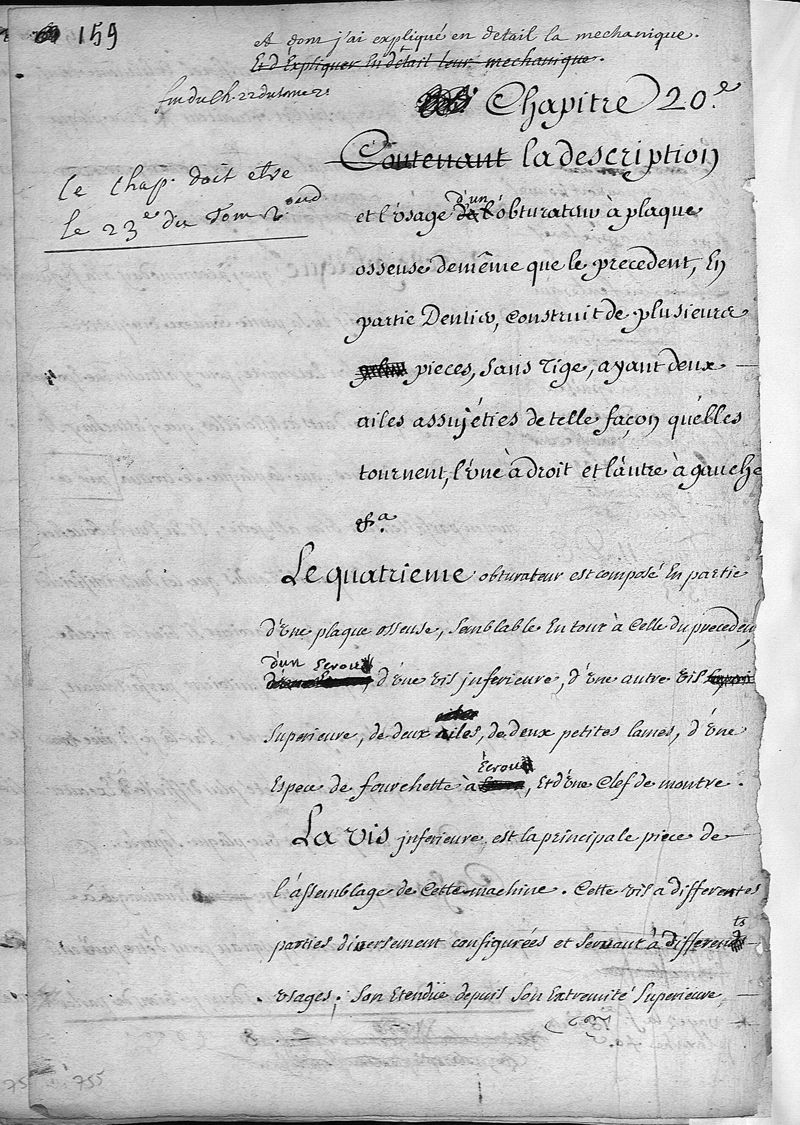 159
et dom j'ai expliqué en detail la mechanique.
Et d'Expliquer En détail leur mechanique.
fin du Ch. 22 du tome 2
Chapitre 20.e
Ce Chap. doit etre
le 23e du Tom 2.ond
Contenant la description
et l'úsage d'un obturateur à plaque
osseuse de même que le precedent, En
partie Dentier, Construit de plusieurs
pieces, Sans Tige, ayant deux
ailes assujéties de telle façon qu'élles
tournent, l'úne à droit et l'aûtre à gauche
&.a
Le quatrieme obturateur est composé En partie
d'úne plaque osseuse, Semblable En tout à Celle du precedent,
d'un Ecrou, d'úne vis inferieure, d'úne autre vis
Superieure, de deux ailes, de deux petites lames, d'úne
Espece de fourchette à Ecrou, Et d'úne Clef de montre.
La vis inferieure, est la principale piece de
l'assemblage de Cette machine. Cette vis a differentes
parties diversement configurées et servant à differents
usages; Son Etendüe depuis Son Extremité Superieure,
755